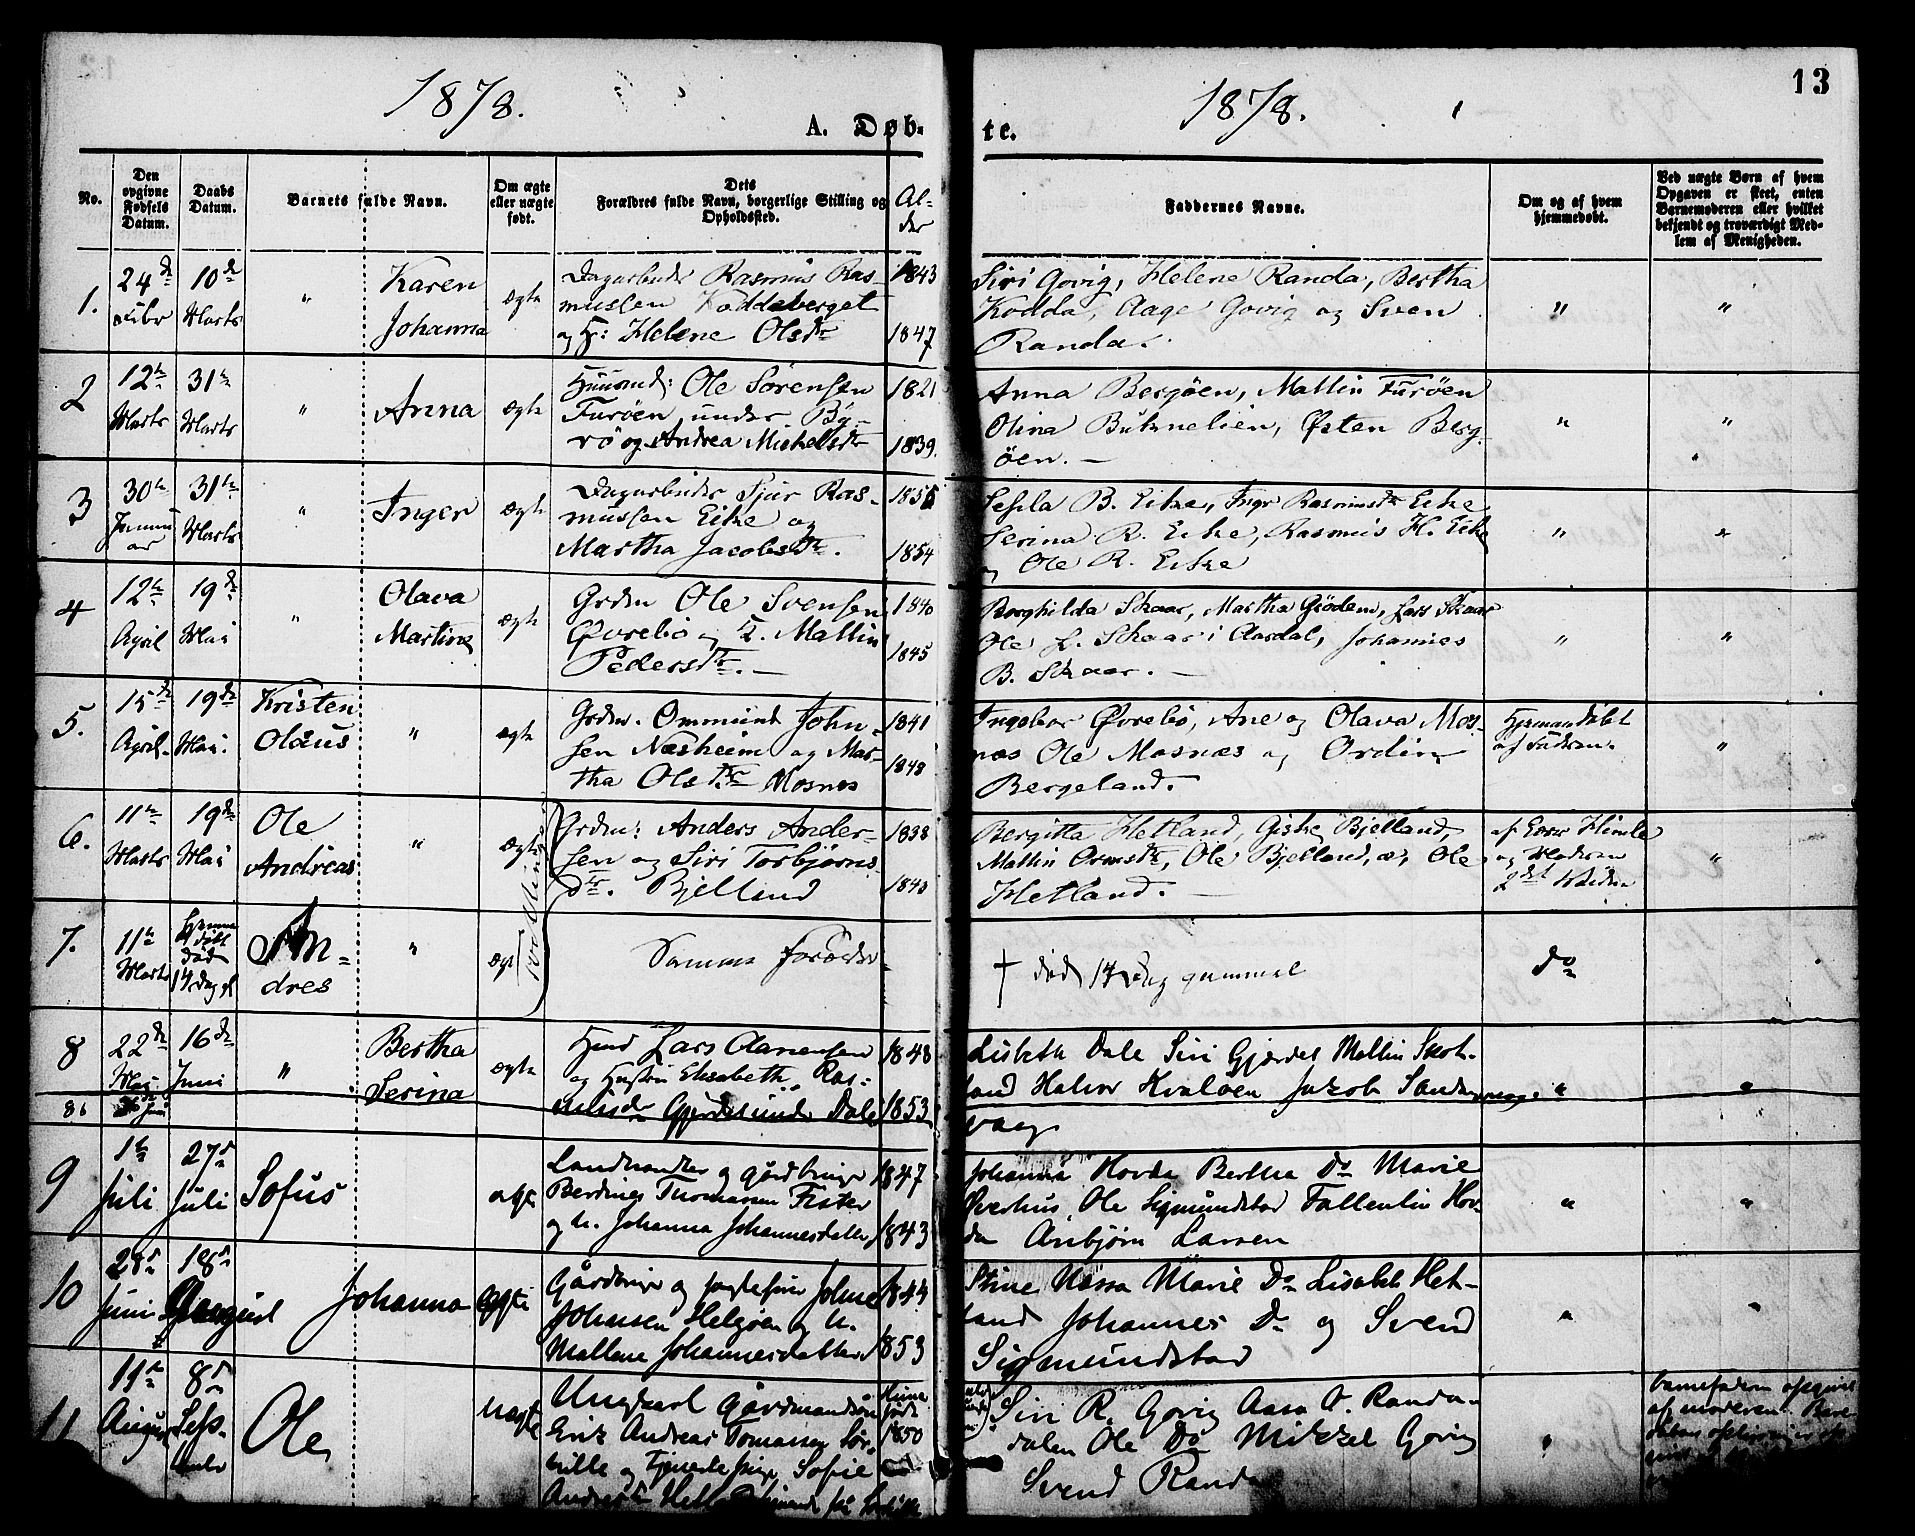 1878.
1878.
13
A. Døb-
te.
No.
Den opgivne Fødsels Datum.
Daabs Datum.
Barnets fulde Navn.
Om ægte eller uægte født.
Dets Forældres fulde Navn, borgerlige Stilling og Opholdssted.
Al-
der
Faddernes Navne.
Om og af hvem hjemmedøbt.
Ved uægte Børn af hvem Opgaven er skeet, enten Barnemoderen eller hvilket bekjendt og troværdigt Medlem af Menigheden.
1.
24de Febr
10de Marts
"
Karen
Johanna
ægte
Dagarbeider Rasmus Ras-
mussen Koddeberget
og H: Helene Olsdtr
1843
1847
Siri Govig, Helene Randa, Bertha
Kodda, Aage Govig og Sven
Randa.
"
"
2
12te Marts
31te Marts
"
Anna
ægte
Huusmd: Ole Sørensen
Furøen under By-
rø og Andrea Mickelsdtr
1821
1839.
Anna Bergøen, Mallin Furøen
Olina Buknelien, Østen Berg-
øen. —
"
"
3
30te Janu
ar
31te Marts
"
Inger
ægte
Dagarbeider Sjur Ras-
mussen Eike og
Martha Jacobsdtr.
1855
1854
B. Eike, Inger Rasmusdtr Eike
Serina R. Eike, Rasmus H. Eike
og Ole R. Eike
"
"
4
12te April
19de Mai
"
Olava
Martine
ægte
Grdm Ole Svensen
Øvrebø og H. Mallin
Pedersdtr. —
1840
1845
Borghilda Skaar, Martha Grødem, Lars Skaar
Ole L. Skaar i Aardal, Johannes
B. Skaar. —
"
"
5.
15de April
19de Mai.
Kristen
Olaus
"
ægte
Grdm. Ommund John-
sen Næsheim og Mar-
tha Olsdtr Mosnes
1841
1848
Ingebor Øvrebø, Ane og Olava Mos-
næs Ole Mosnæs og Ordin
Bergeland.
Hjemmedøbt
af Faderen.
"
6.
11te Marts
19de Mai
Ole
Andreas
"
ægte
Grdm: Anders Ander-
sen og Siri Torbjørns-
dtr. Bjelland
1838
1840
Bergitta Hetland, Giske Bjelland,
Mallin Ormsdtr, Ole Bjelland, Ole
Hetland. —
og Moderen
"
7.
11te Marts
Hjemme
døbt
død
14 Dag gl
An-
dres
"
ægte
Tvillinger
Samme Forældre
† død 14 Dag gammel
Do
8
22de Mai
16de Juni
"
Bertha
Serina
ægte
Lars Clausensen
og Hustru Elisabeth Ras-
musdr Gjerdesunde Dale
1848
1853
Lisbeth Dale Siri Gjerdes Mallin Skot-
land Halvor Kvaløen Jakob Sande
vaag
"
"
9
1te
Juli
27de
Juli
Sofus
ægte
Landhandler og Gårdbruger
Berdines Thomasen Fister
og h. Johanna Johannesdatter
1847
1843
Johanna Hovda Bertha Do Marie
Øverhus, Ole Sigmundstad Fallentin Hov-
da Anbjørn Larsen
"
"
10
28de
Juni
18de
August
Johanna
ægte
Gårdbruger og Johne
Johnsen Helgøen og h.
Mallene Johannesdatter
1844
1853
Stine Nessa Marie Do Lisabeth Het-
land Johannes Do og Svend
Sigmundstad
"
"
11
11te
August
8de
Sep-
tember
Ole
uægte
Ungkarl Gårdmandsøn
Erik Andreas Tomassen Sør-
og Sofie
1850
Siri R. Govig Aasa O. Randa-
dalen Ole Do Mikkel Govig
Svend Randa
"
Barnefaderen opgivet
af moderen.